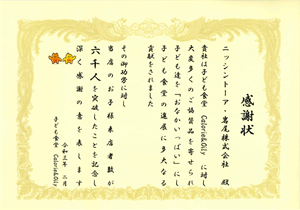 感謝状
ニッシントーア・岩尾株式会社 殿
貴社は子ども食堂 Calorie&Olly に対し
大変多くのご協賛品を寄せられ
子ども達を「おなかいっぱい」にし
子ども食堂の進展に多大なる
貢献をされました
その御功労に対し
当店のお子様来店者数が
六千人を突破したことを記念し
深く感謝の意を表します
令和三年 二月
子ども食堂 Calorie&Olly